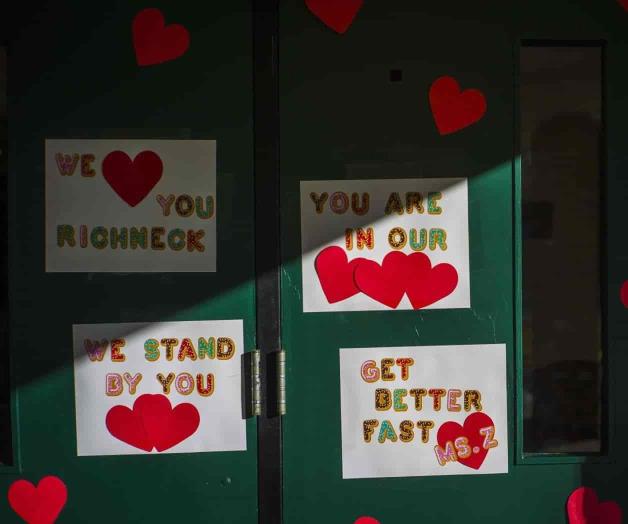 WE YOU
RICHNECK
YOU ARE
IN OUR
WE STAND
BY YOU
GET
BETTER
FAST
MS. Z